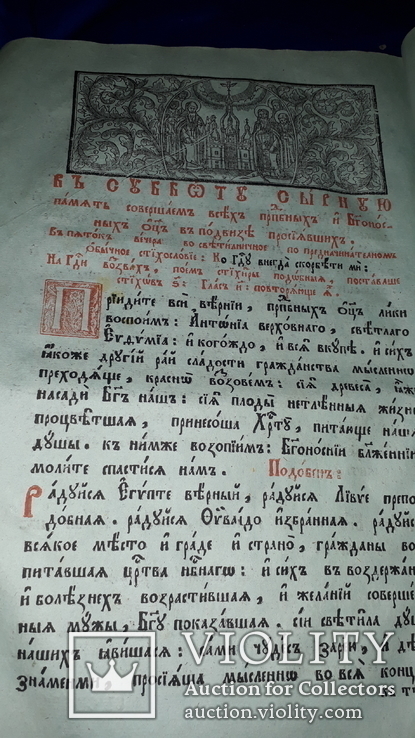 Въ сꙋббѡ́тꙋ сы́рнꙋю
па́мять соверша́емъ всѣ́хъ прпⷣбныхъ и҆ бг҃оно́с
ныхъ ѻ҆ц҃ъ въ по́двизѣ просїѧ́вшихъ.
Въ пѧто́къ ве́чера во свѣти́лничное по предначина́телномъ
ѻ҆бы́чное стїхосло́вїе: Ко гдⷭ҇ꙋ внегда̀ скорбѣ́ти мѝ:
На гдⷭ҇и воззва́хъ, пое́мъ стїхи̑ры подѡ́бныѧ, поста́вльше
стїхѡ́въ
Гла́съ и҃ повторѧ́юще
Прїиди́те всѝ вѣ́рнїи, прпⷣбныхъ ѻ҆ц҃ъ ли́ки
воспои́мъ: А҆нтѡ́нїа верхо́внаго, свѣ́тлаго
Є҆ѵдꙋ́мїа: и҆ кого́ждо, и҆ всѧ̀ вкꙋ́пѣ. и҆ си́хъ
ꙗ҆́коже дрꙋгі́й ра́й сла́дости гражда́нства мы́сленнѡ
преходѧ́ще, кра́снѡ возово́вемъ: сїѧ̑ древеса̀,
насадѝ бг҃ъ на́шъ: сїѧ̑ плоды̀ нетлѣ́нныѧ жи́зни
процвѣ́тшаѧ, принесо́ша хрⷭ҇тꙋ̀, пита́юще на́шѧ
дꙋ́шы. къ ни̑мже возопїи́мъ: бг҃оно́снїи бл҃же́ннїи
моли́те спасти́сѧ на́мъ. Подо́бенъ:
Ра́дꙋйсѧ Є҆гѵ́пте вѣ́рный, ра́дꙋйсѧ Лїві́е препо
до́бнаѧ. ра́дꙋйсѧ Ѳиваи́до и҆збра́ннаѧ. ра́дꙋйсѧ
всѧ́кое мѣ́сто и҆ гра́де и҆ странѡ̀, гра́жданы во
пита́вшаѧ црⷭ҇тва нбⷭ҇нагѡ: и҆ си́хъ въ воздержа́
и҆ болѣ́знехъ возрасти́вшаѧ, и҆ жела́нїй соверше́
ныѧ мꙋ́жы, бг҃ꙋ показа́вшаѧ. сїѝ свѣти́ла дꙋ́
на́шихъ ꙗ҆ви́шасѧ: са́ми чꙋде́съ зарѝ, и҆ дѣ
зна́меньми, просїѧ́ша мы́сленнѡ во всѧ̑ концы̀
VIOLITY
Auction for Collectors
auction.violity.com